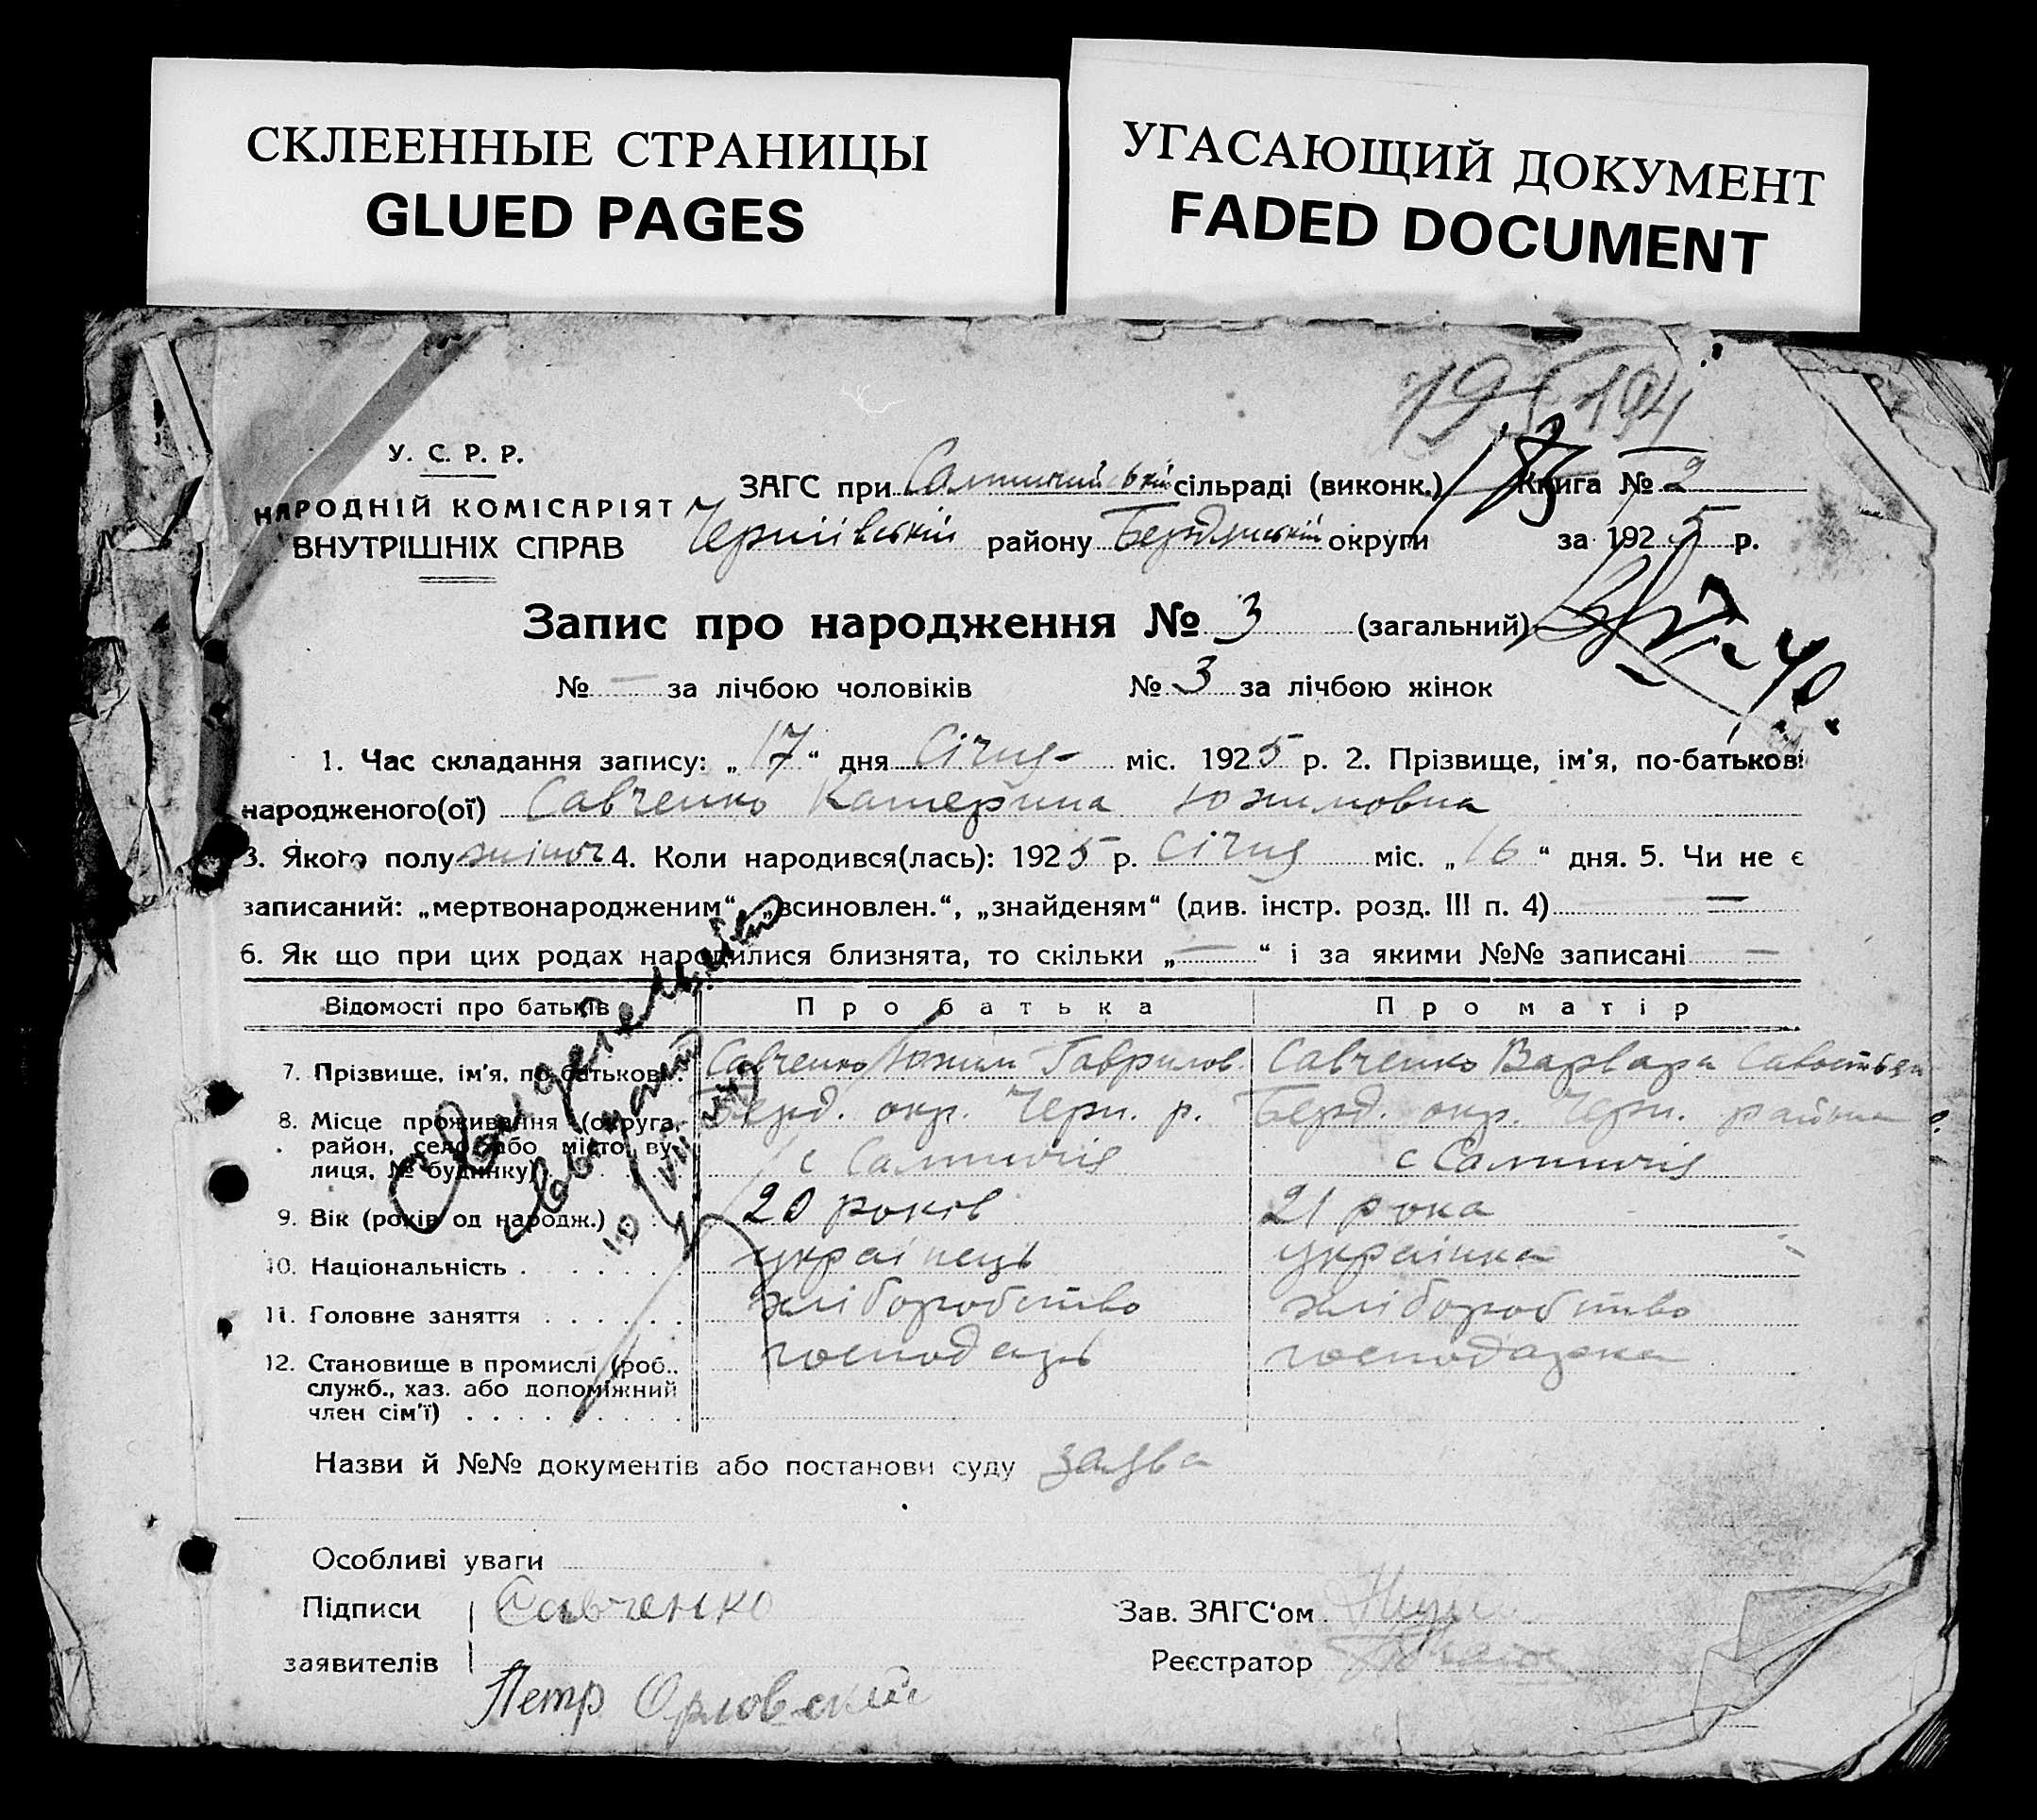 СКЛЕЕННЫЕ СТРАНИЦЫ
GLUED PAGES
УГАСАЮЩИЙ ДОКУМЕНТ
FADED DOCUMENT
194
У. С. Р. Р.
НАРОДНІЙ КОМІСАРІЯТ
ВНУТРІШНІХ СПРАВ
ЗАГС при сільраді (виконк.) Книга № 2
району округи за 1925 р.
Запис про народження № 3 (загальний)
№ — за лічбою чоловіків № 3 за лічбою жінок
1. Час складання запису: „17“ дня Січня міс. 1925 р. 2. Прізвище, ім'я, по-батькові
народженого(ої) Савченко Катерина Юхимовна
3. Якого полу жіноч 4. Коли народився(лась): 1925 р. Січня міс. „16“ дня. 5. Чи не є
записаний: „мертвонародженим“, „всиновлен.“, „знайденям“ (див. інстр. розд. III п. 4) —
6. Як що при цих родах народилися близнята, то скільки „—“ і за якими №№ записані —
Відомості про батьків Про батька Про матір
7. Прізвище, ім'я, по батькові. Савченко Юхим Гаврилов. Савченко Варвара
8. Місце проживання (округа, Берд. окр. Черн. р. Берд. окр. Черн. района
район, село або місто, ву-
лиця, № будинку) с с
9. Вік (років од народж.) 20 років 21 рока
10. Національність українець українка
11. Головне заняття хліборобство хліборобство
12. Становище в промислі (роб., господарь господарка
служб., хаз. або допоміжний
член сім'ї)
Свидетельство
выдано
10 VII
Назви й №№ документів або постанови суду заява
Особливі уваги
Підписи Савченко Зав. ЗАГС'ом
заявителів Реєстратор
Петр Орловский